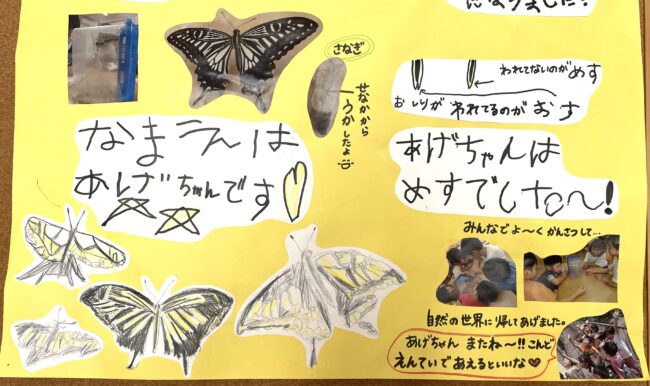 になりました！
さなぎ
せなかから
うかしたよ
われてないのがめす
おしりが われてるのが おす
なまえは
あげちゃんです
あげちゃんは
めすでした〜！
みんなでよ〜くかんさつして…
自然の世界に帰してあげました。
あげちゃん またね〜!! こんど
えんていであえるといいな♥